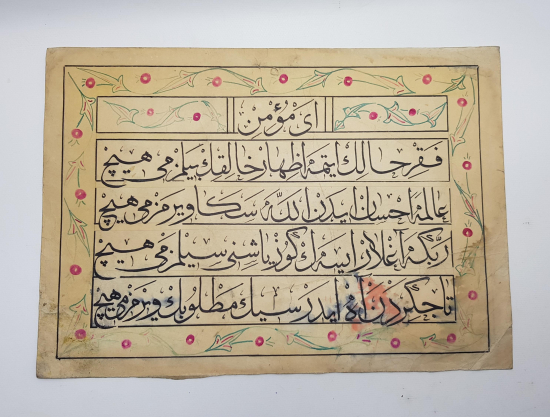 ای مؤمن
فقر حالك ایتمه اظهار خالقك بیلمزمی هیچ
عالمه احسان ایدن الله سكا ویرمزمی هیچ
ربكه آغلار ایسه ك گوز یاشنی سیلمزمی هیچ
تا جگردن آه ایدرسیك مطلوبك ویرمزمی هیچ